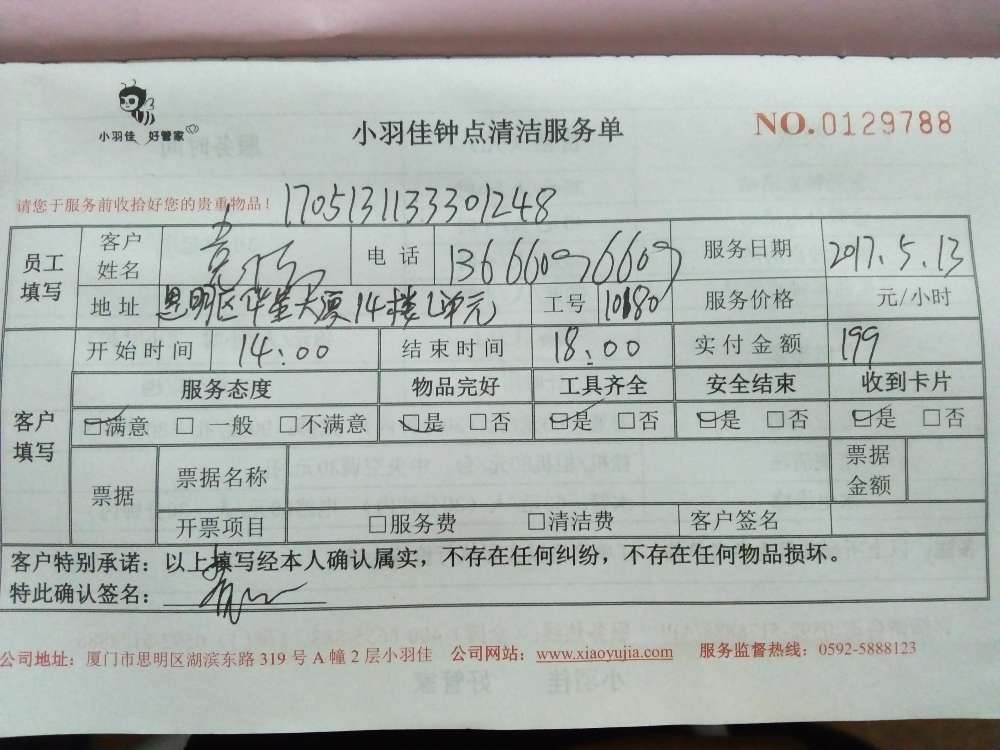 小羽佳 好管家
小羽佳钟点清洁服务单
NO.0129788
请您于服务前收拾好您的贵重物品！
17051311133301248
员工填写 客户姓名 电话 13666096609 服务日期 2017.5.13
地址 思明区华星大厦14楼L单元 工号 10180 服务价格 元/小时
客户填写 开始时间 14:00 结束时间 18:00 实付金额 199
服务态度 物品完好 工具齐全 安全结束 收到卡片
☑满意 □ 一般 □不满意 ☑是 □否 ☑是 □否 ☑是 □否 ☑是 □否
票据 票据名称 票据金额
开票项目 □服务费 □清洁费 客户签名
客户特别承诺：以上填写经本人确认属实，不存在任何纠纷，不存在任何物品损坏。
特此确认签名：
公司地址：厦门市思明区湖滨东路 319 号 A 幢 2 层小羽佳 公司网站：www.xiaoyujia.com 服务监督热线：0592-5888123